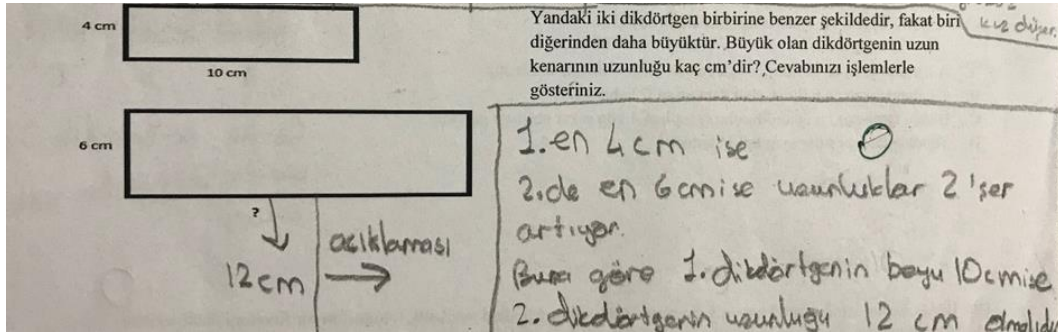 4 cm
10 cm
Yandaki iki dikdörtgen birbirine benzer şekildedir, fakat biri
diğerinden daha büyüktür. Büyük olan dikdörtgenin uzun
kenarının uzunluğu kaç cm'dir? Cevabınızı işlemlerle
gösteriniz.
6 cm
?
12cm
açıklaması
1. en 4 cm ise
2. de en 6cm ise uzunluklar 2'şer
artıyor.
Buna göre 1. dikdörtgenin boyu 10cm ise
2. dikdörtgenin uzunluğu 12 cm